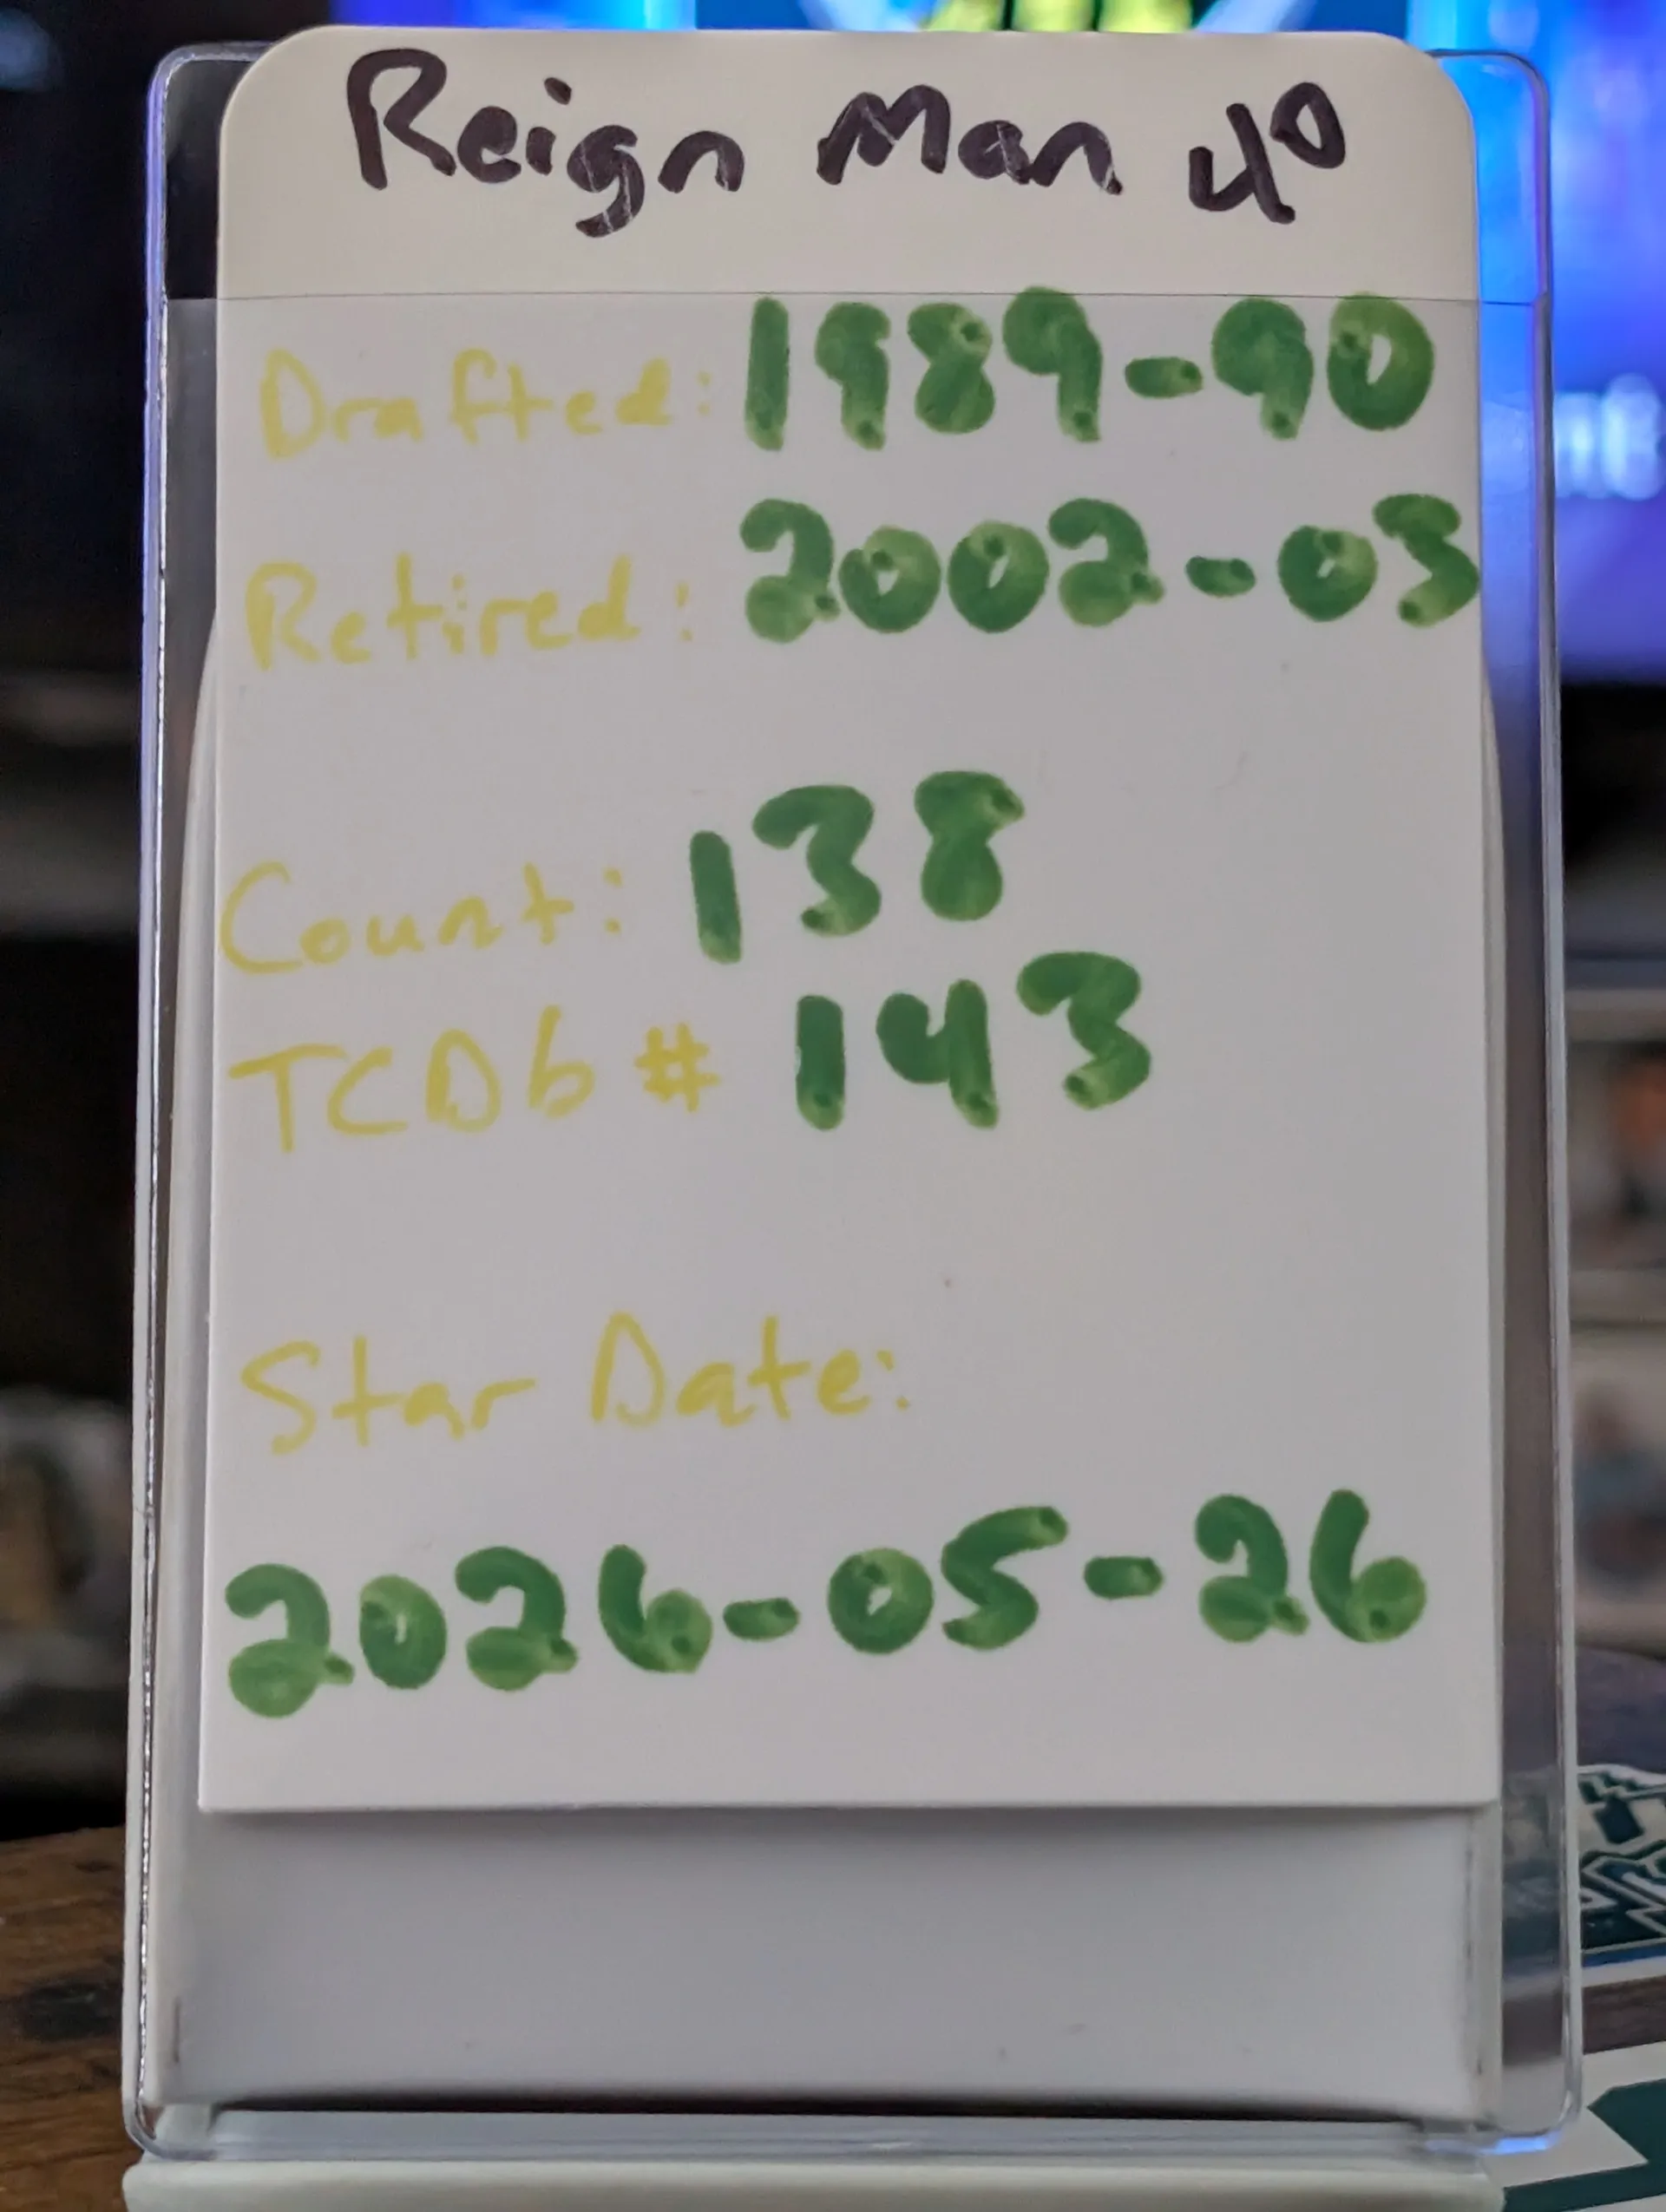 Reign Man 40
Drafted: 1989-90
Retired: 2002-03
Count: 138
TCDb # 143
Star Date:
2026-05-26